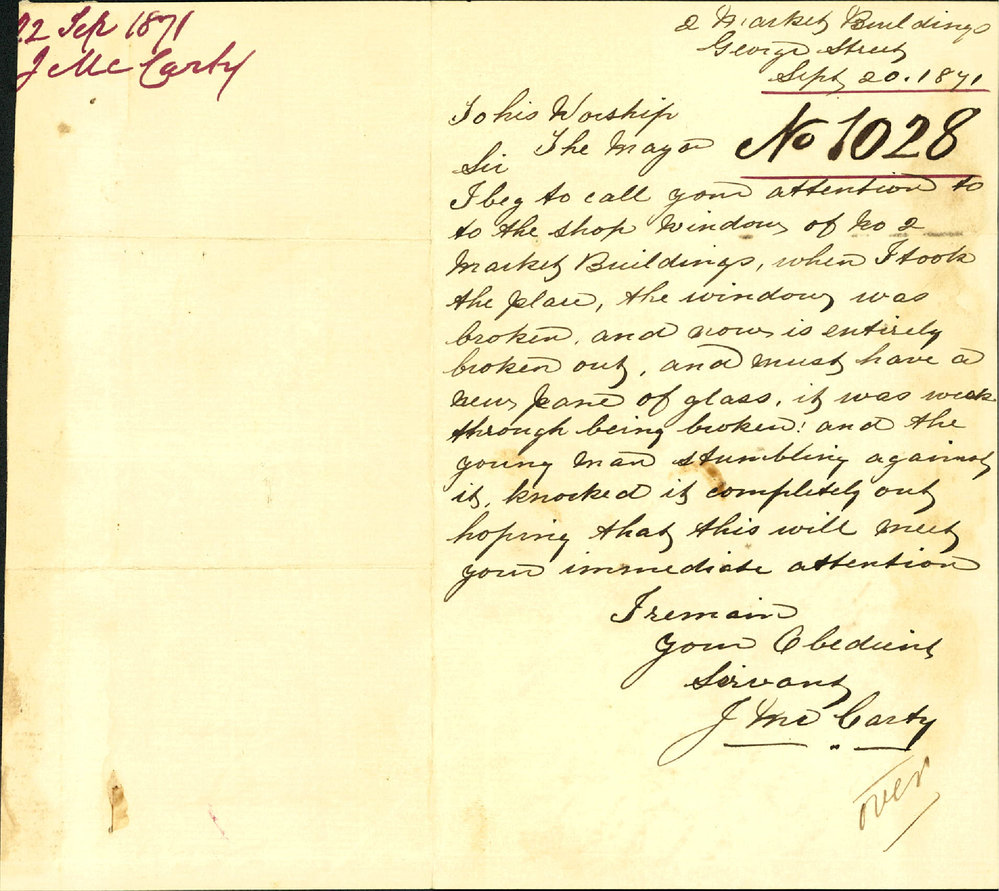 22 Sep 1871
J McCarty
2 Market Buildings
George Street
Sept 20. 1871
No 1028
To his Worship
The Mayor
Sir
I beg to call your attention to
to the shop window of No 2
Market Buildings, when I took
the place, the window was
broken, and now is entirely
broken out, and must have a
new pane of glass, it was weak
through being broken: and the
young man stumbling against
it, knocked it completely out
hoping that this will meet
your immediate attention
I remain
your Obedient
Servant
J McCarty
over